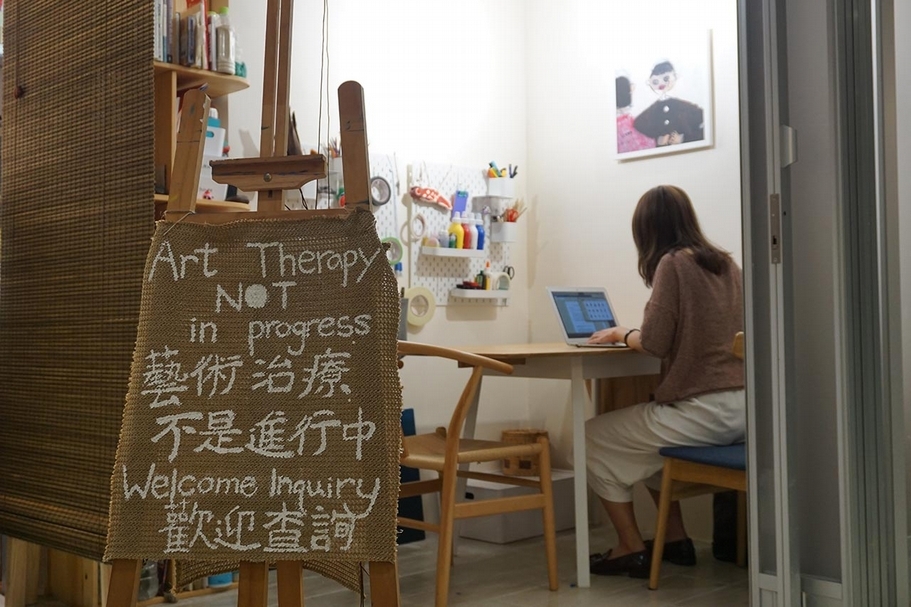 Art Therapy
NOT
in progress
藝術治療
不是進行中
Welcome Inquiry
歡迎查詢